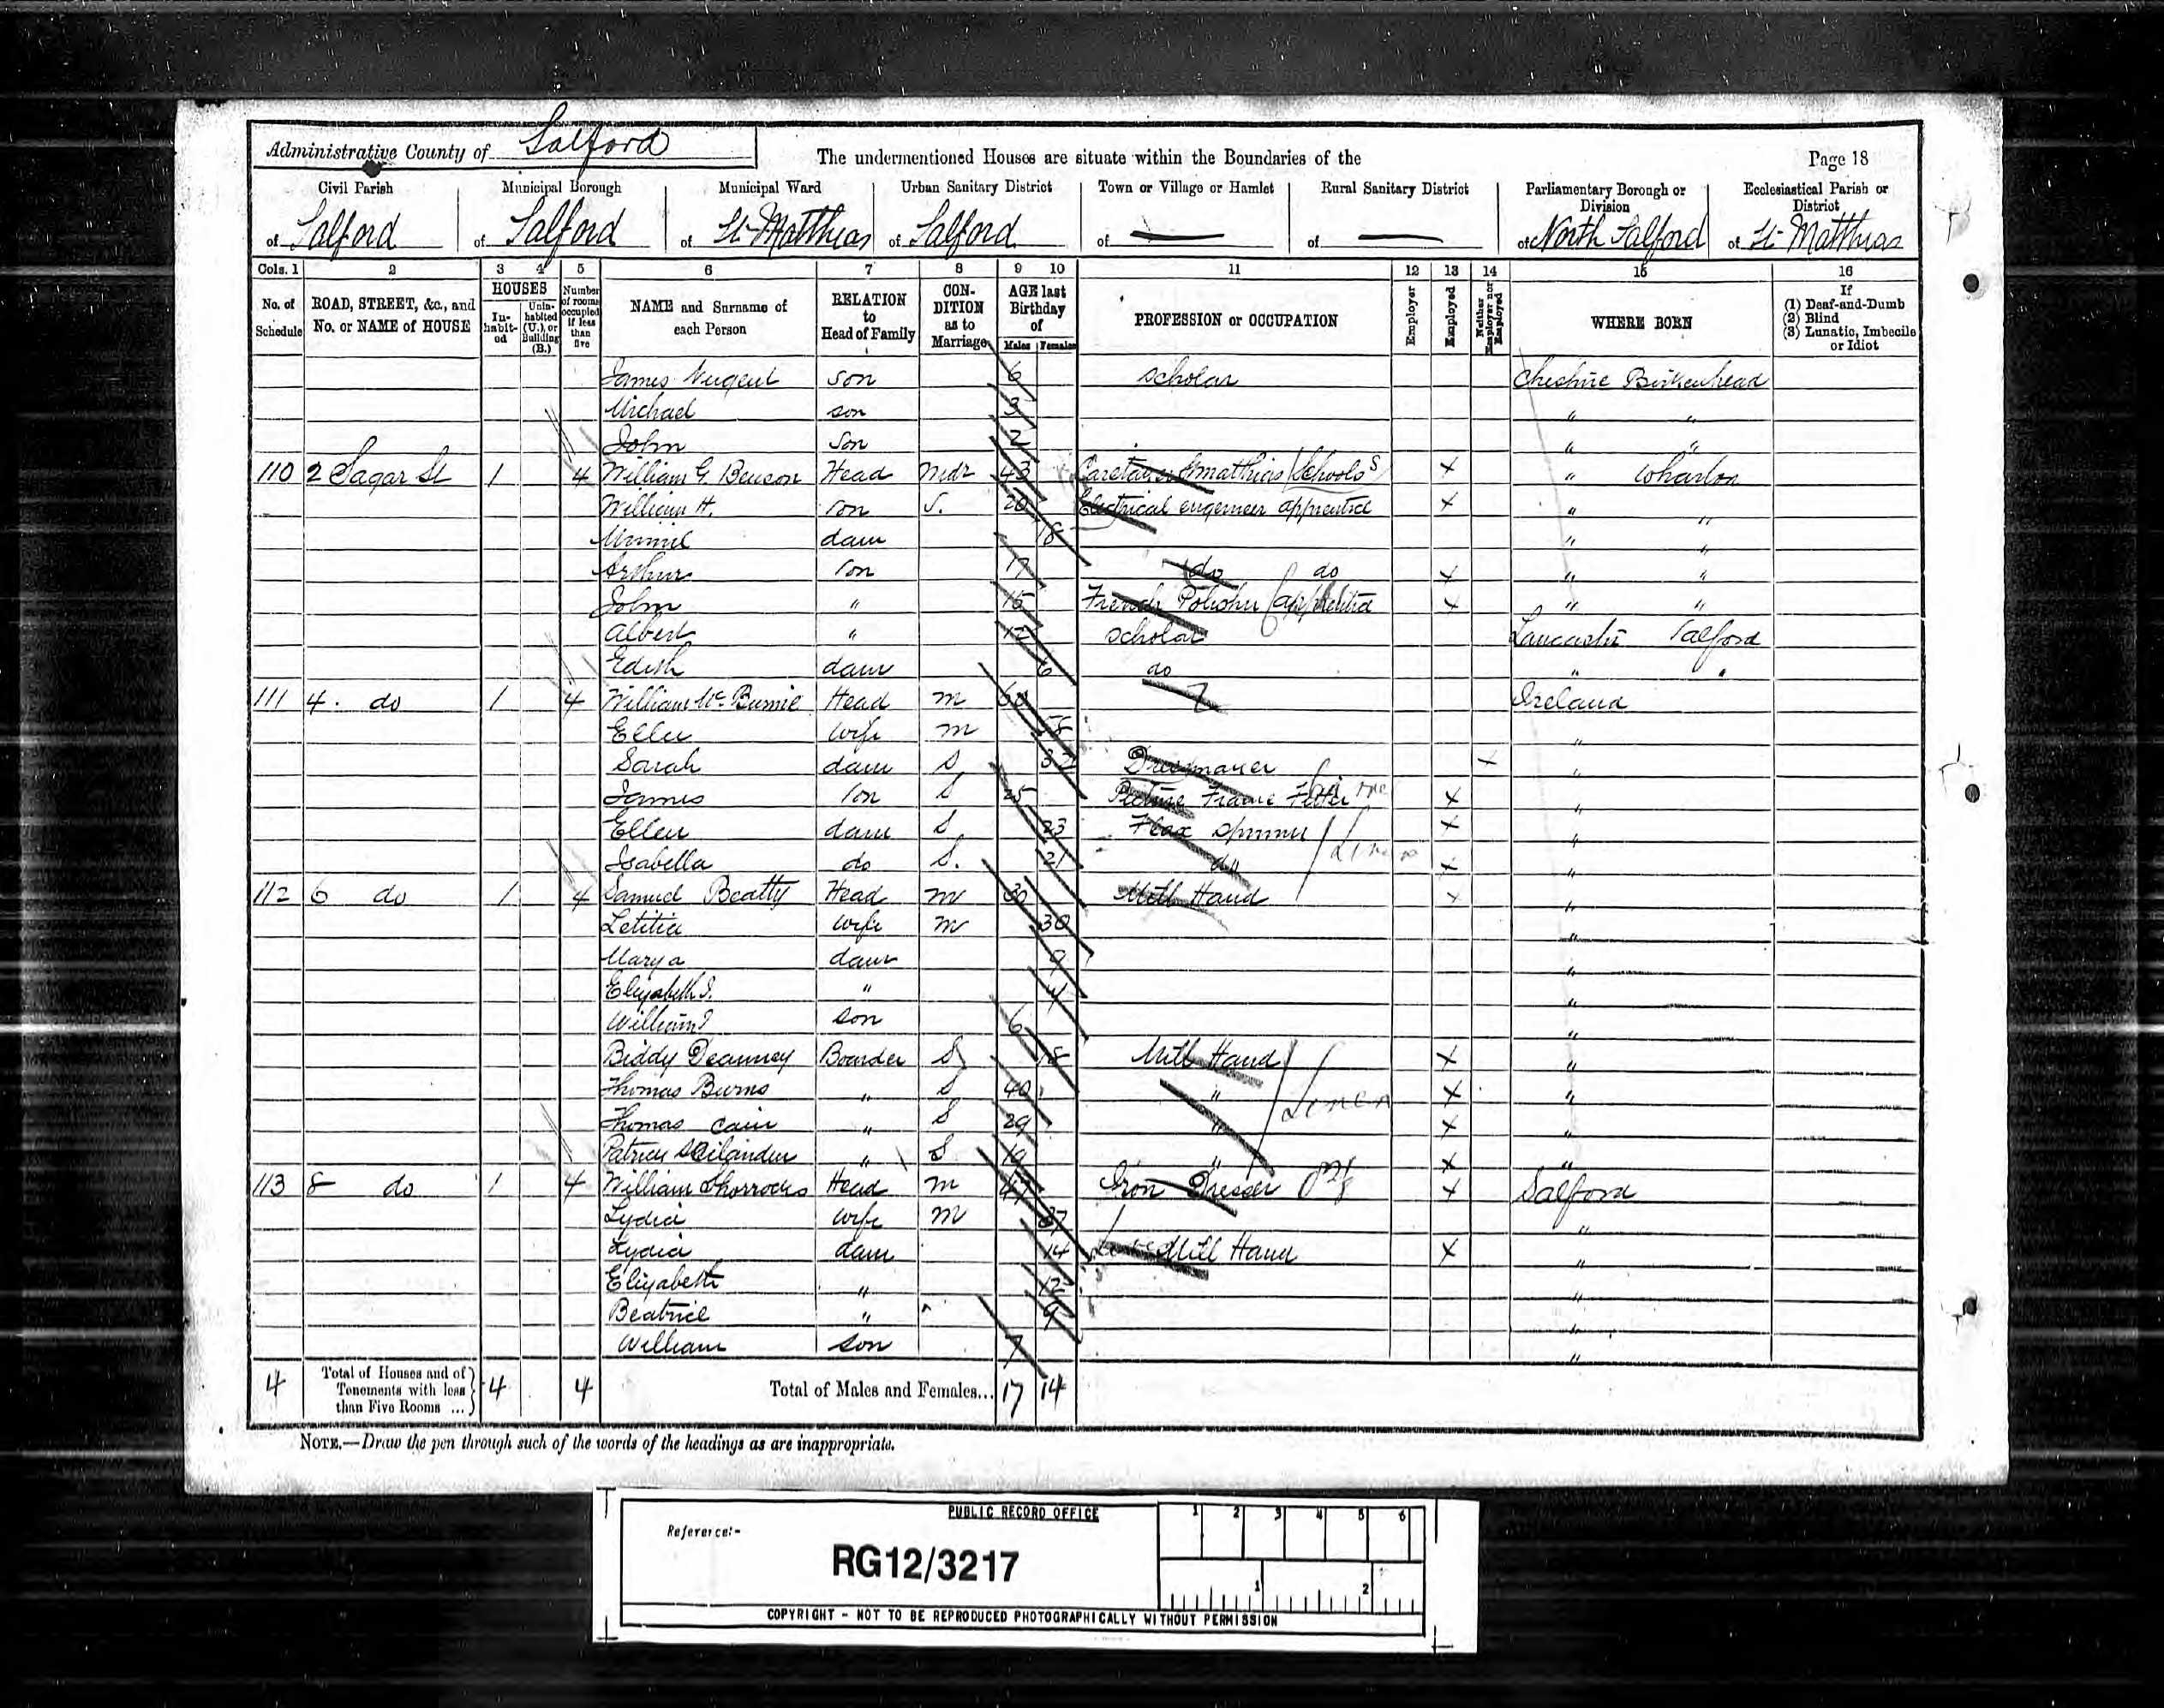 Administrative County of Salford
The undermentioned Houses are situate within the Boundaries of the
Page 18
Civil Parish Municipal Borough Municipal Ward Urban Sanitary District Town or Village or Hamlet Rural Sanitary District Parliamentary Borough or Division Ecclesiastical Parish or District
of Salford of Salford of St Matthias of Salford of — of — of North Salford of St Matthias
Cols. 1 2 3 4 5 6 7 8 9 10 11 12 13 14 15 16
No. of Schedule ROAD, STREET, &c., and No. or NAME of HOUSE HOUSES In-habit-ed Unin-habited (U.), or Building (B.) Number of rooms occupied if less than five NAME and Surname of each Person RELATION to Head of Family CON-DITION as to Marriage AGE last Birthday of Males Females PROFESSION or OCCUPATION Employer Employed Neither Employer nor Employed WHERE BORN If (1) Deaf-and-Dumb (2) Blind (3) Lunatic, Imbecile or Idiot
James Nugent son 6 scholar Cheshire Birkenhead
Michael son 3 " "
John son 2 " "
110 2 Sagar St 1 4 William G. Benson Head Mdr 43 Caretaker St matthias Schools X " Wharton
William H. son S. 20 Electrical engeneer apprentice X " "
Minnie daur 18 " "
Arthur son 17 do do X " "
John " 15 French Polisher apprentice X " "
Albert " 12 scholar Lancashire Salford
Edith daur 6 do " "
111 4. do 1 4 William Mc Burnie Head m Ireland
Ellen wife m 58 "
Sarah daur S Dressmaker X "
James son S 25 Picture Frame Fitter X "
Ellen daur S 23 Flax spinner X "
Isabella do S. 21 do Linen X "
112 6 do 1 4 Samuel Beatty Head m 30 Mill Hand X "
Letitia wife m 30 "
Mary a daur 9 "
Elizabeth S. " 4 "
William son 6 "
Biddy Deanney Boarder S 18 Mill Hand X "
Thomas Burns " S 40 " Linen X "
Thomas Cain " S 29 " X "
Patrick " S 19 " X "
113 8 do 1 4 William Shorrocks Head m 47 Iron Dresser X Salford
Lydia wife m 37 "
Lydia daur 14 Mill Hand X "
Elizabeth " 12 "
Beatrice " 9 "
William son 7 "
4 Total of Houses and of Tenements with less than Five Rooms ... 4 4 Total of Males and Females... 17 14
NOTE.—Draw the pen through such of the words of the headings as are inappropriate.
PUBLIC RECORD OFFICE
1 2 3 4 5 6
Reference:-
RG12/3217
1 2
COPYRIGHT - NOT TO BE REPRODUCED PHOTOGRAPHICALLY WITHOUT PERMISSION